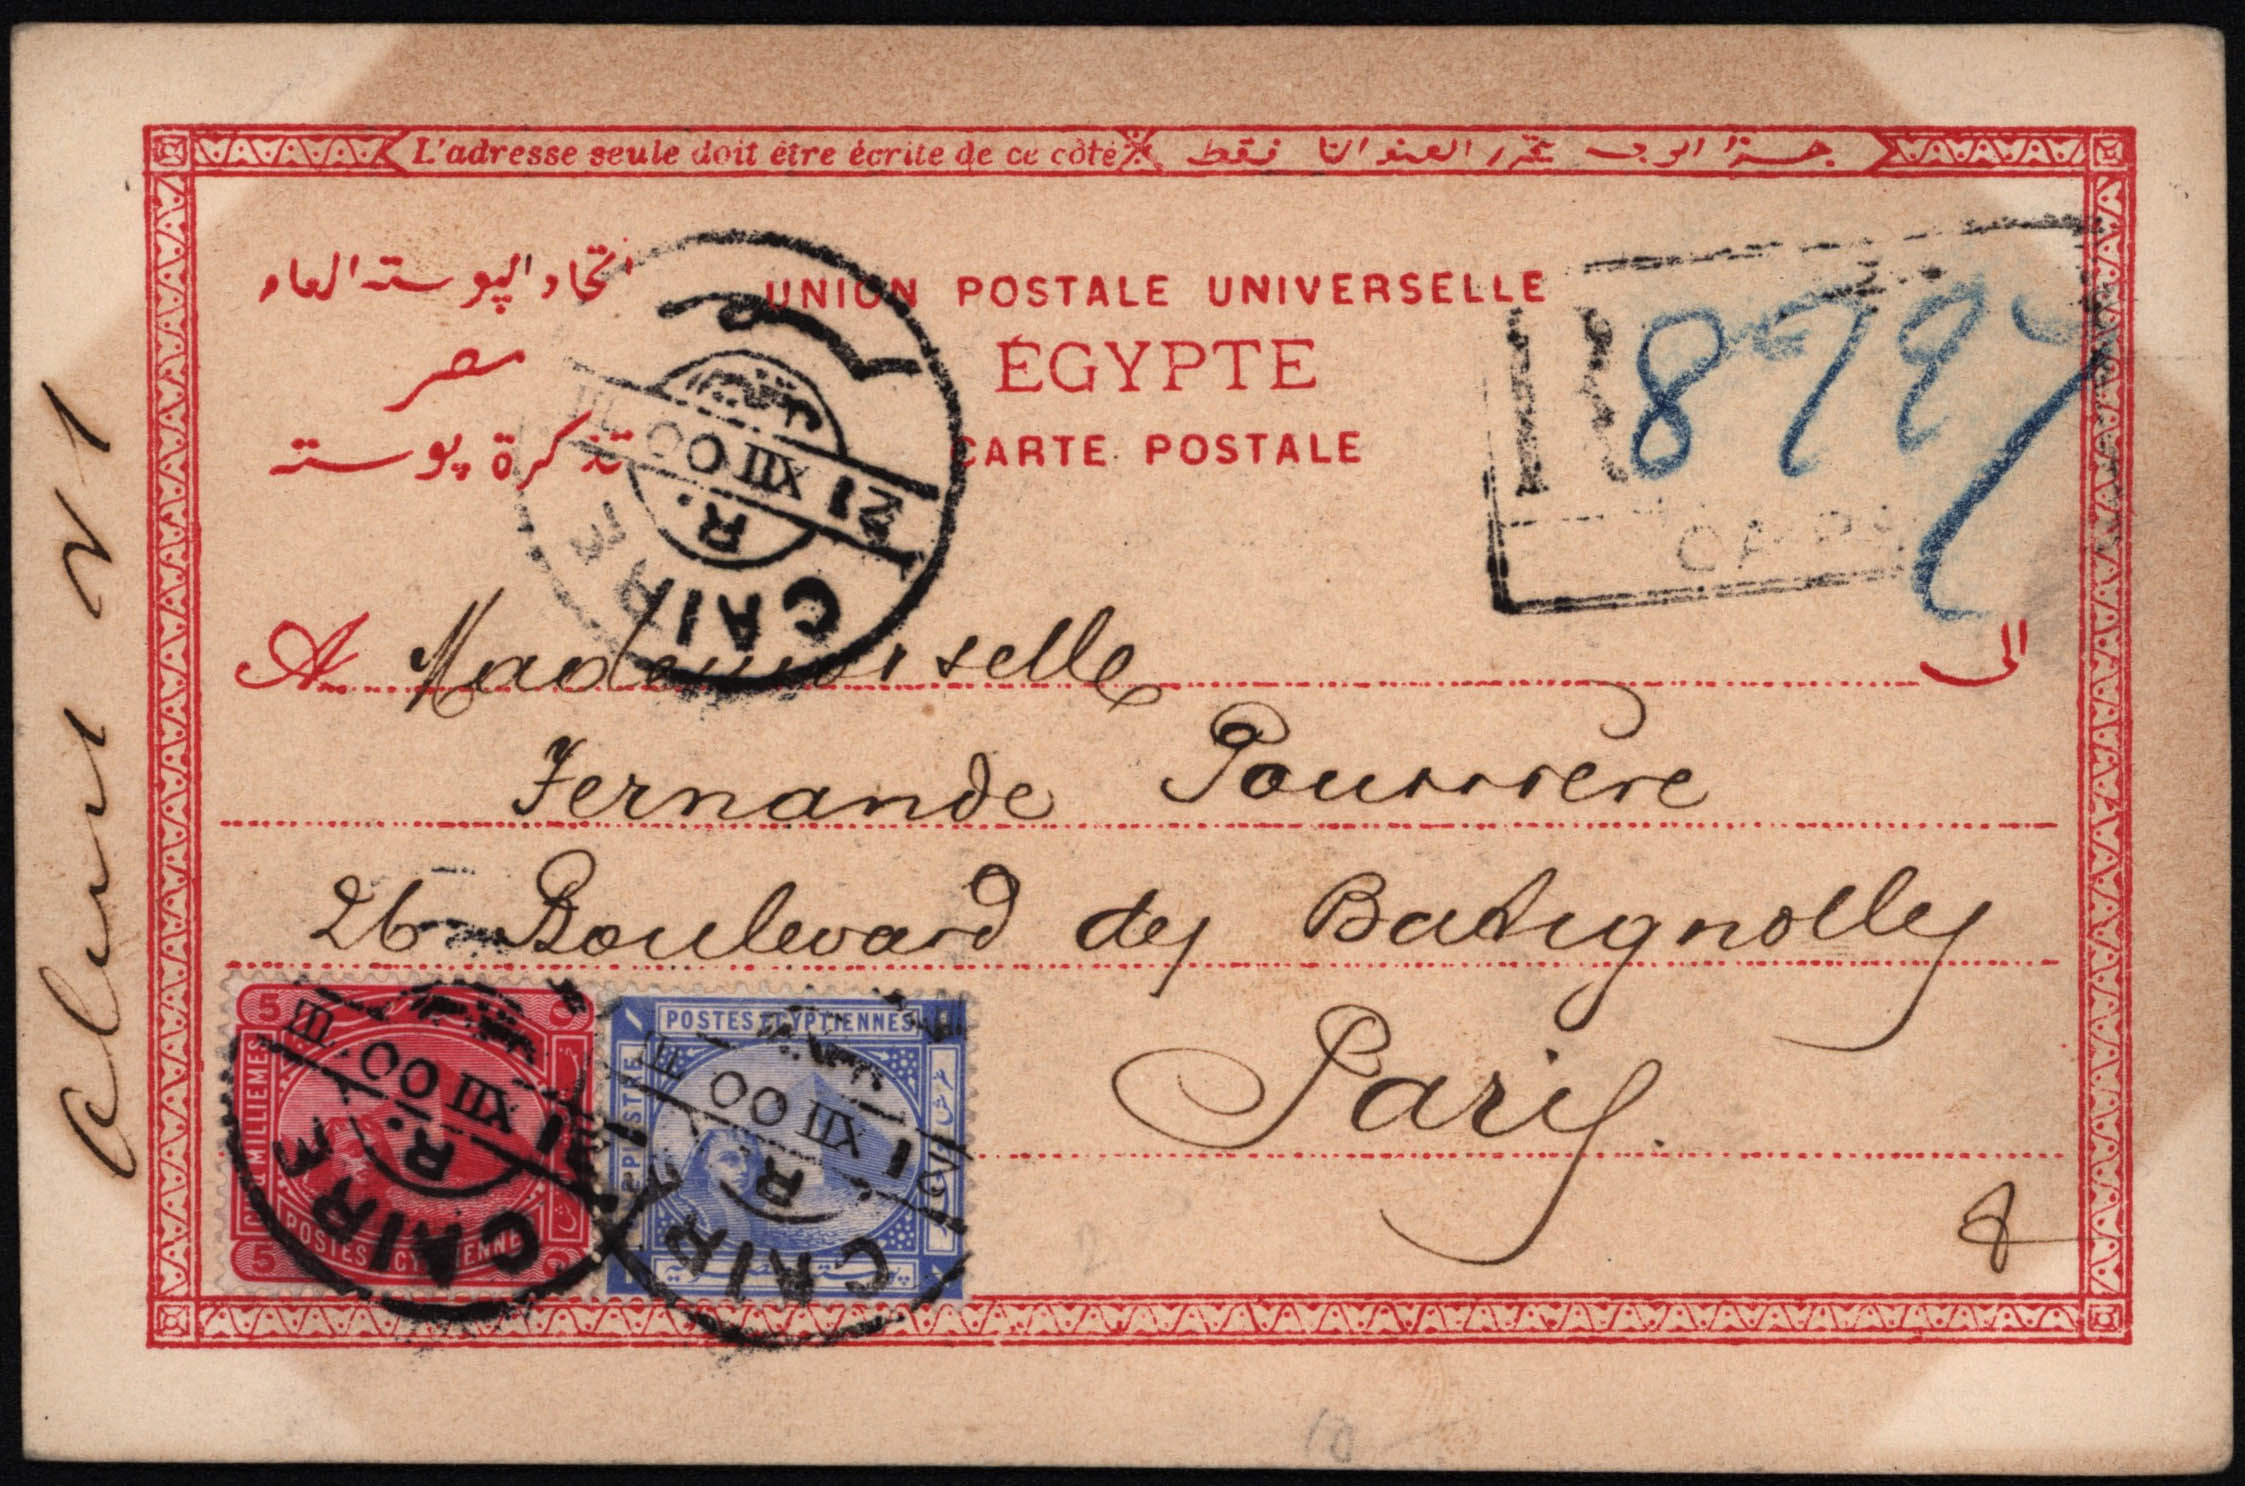 L'adresse seule doit être écrite de ce côté
اتحاد البوستة العام
UNION POSTALE UNIVERSELLE
مصر
ÉGYPTE
تذكرة بوستة
CARTE POSTALE
R
CAIRE
R.
21 XII 00 III
A Mademoiselle الى
Fernande Poussière
26 Boulevard des Batignolles
Paris.
8
5 5
CINQ MILLIEMES
POSTES EGYPTIENNES
5
CAIRE
R.
21 XII 00 III
POSTES EGYPTIENNES
PIASTRE
CAIRE
R.
21 XII 00 III
10